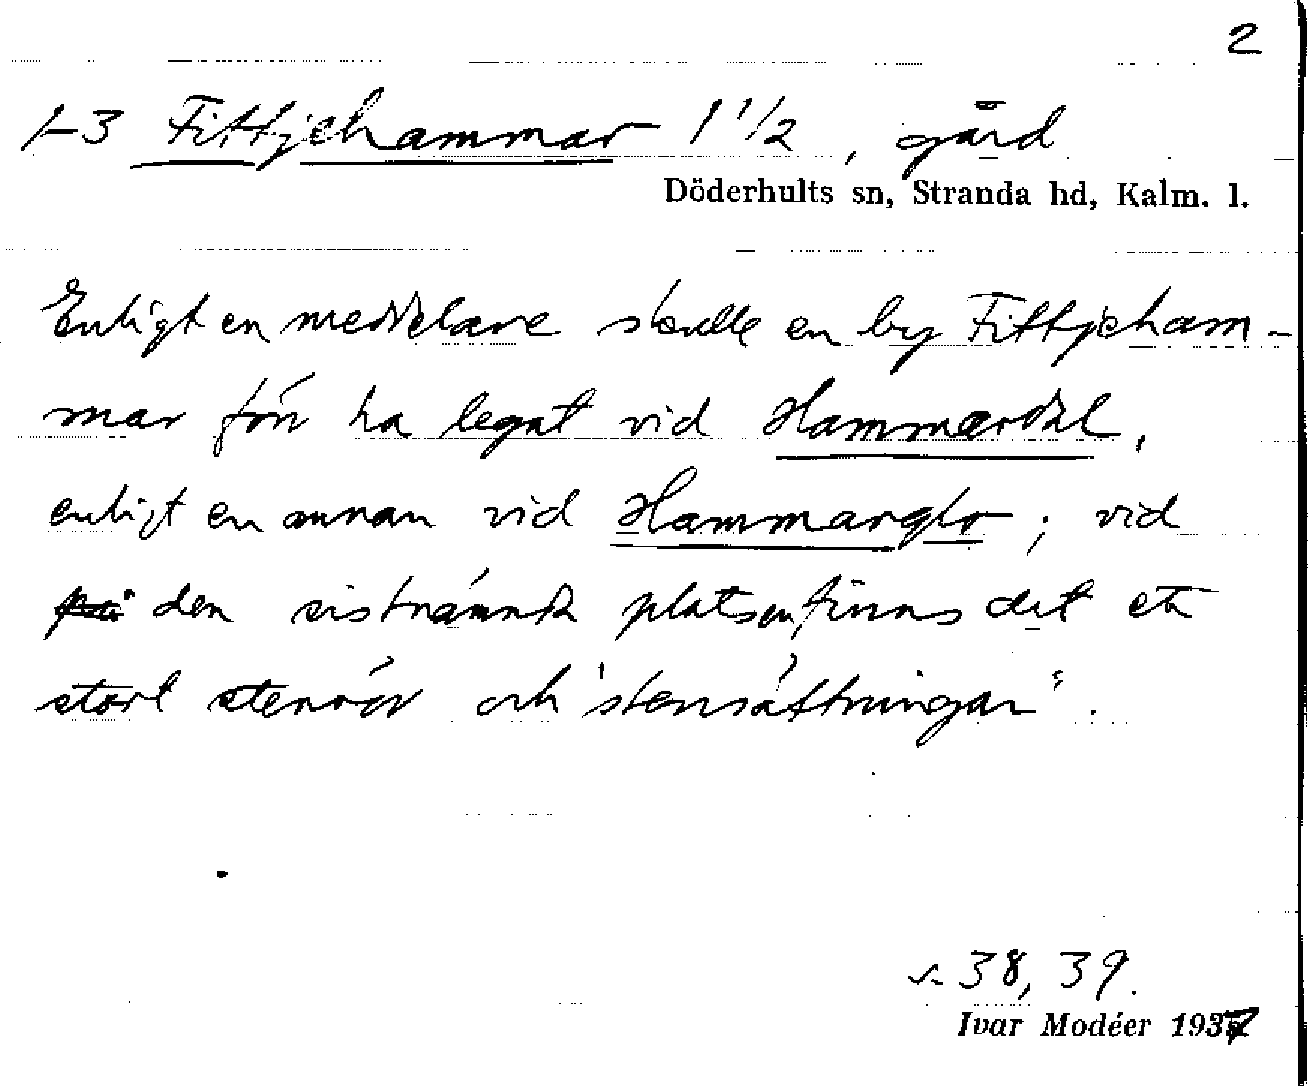 2
1-3 Fittjehammar 1 1/2, gård
Döderhults sn, Stranda hd, Kalm. l.
Enligt en meddelare skulle en by Fittjeham-
mar förr ha legat vid Hammardal,
enligt en annan vid Hammarglo; vid
på den sistnämnda platsen finns det ett
stort stenrör och "stensättningar".
s. 38, 39.
Ivar Modéer 1937